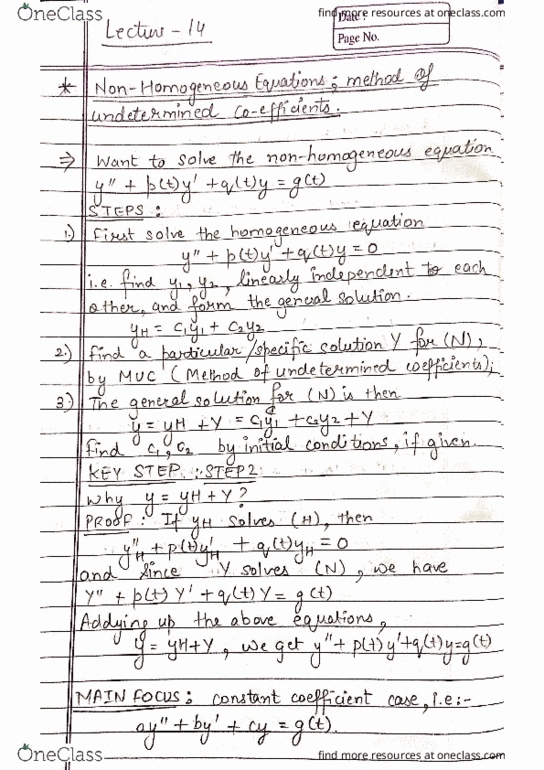 OneClass
find more resources at oneclass.com
Date :
Page No.
Lecture - 14
* Non-Homogeneous Equations; method of
undetermined co-efficients.
⇒ Want to solve the non-homogeneous equation
y'' + p(t)y' + q(t)y = g(t)
STEPS :
1.) First solve the homogeneous equation
y'' + p(t)y' + q(t)y = 0
i.e. find y₁, y₂, linearly independent to each
other, and form the general solution.
yH = c₁y₁ + c₂y₂
2.) Find a particular/specific solution Y for (N),
by MUC (Method of undetermined coefficients);
3.) The general solution for (N) is then
y = yH + Y = c₁y₁ + c₂y₂ + Y
Find c₁, c₂ by initial conditions, if given.
KEY STEP :: STEP 2
Why y = yH + Y ?
PROOF : If yH solves (H), then
y''H + p(t)y'H + q(t)yH = 0
and since Y solves (N), we have
Y'' + p(t) Y' + q(t) Y = g(t)
Addying up the above equations,
y = yH+Y, we get y'' + p(t) y' + q(t)y = g(t)
MAIN FOCUS : constant coefficient case, i.e :-
ay'' + by' + cy = g(t).
OneClass
find more resources at oneclass.com